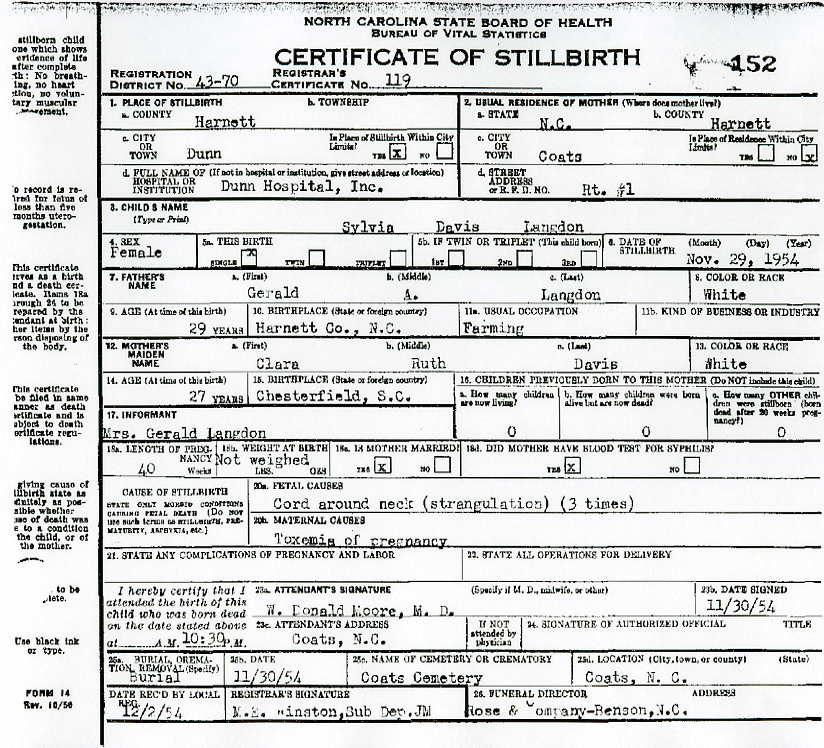 NORTH CAROLINA STATE BOARD OF HEALTH
BUREAU OF VITAL STATISTICS
CERTIFICATE OF STILLBIRTH
152
REGISTRATION DISTRICT No. 43-70
REGISTRAR'S CERTIFICATE No. 119
stillborn child
one which shows
evidence of life
after complete
th: No breath-
ing, no heart
tion, no volun-
tary muscular
1. PLACE OF STILLBIRTH
a. COUNTY Harnett
b. TOWNSHIP
2. USUAL RESIDENCE OF MOTHER (Where does mother live?)
a. STATE N.C.
b. COUNTY Harnett
c. CITY OR TOWN Dunn
Is Place of Stillbirth Within City Limits? YES X NO
c. CITY OR TOWN Coats
Is Place of Residence Within City Limits? YES NO X
d. FULL NAME OF (If not in hospital or institution, give street address or location)
HOSPITAL OR INSTITUTION Dunn Hospital, Inc.
d. STREET ADDRESS or R. F. D. NO. Rt. #1
o record is re-
ired for fetus of
less than five
months utero-
gestation.
3. CHILD'S NAME
(Type or Print) Sylvia Davis Langdon
4. SEX Female
5a. THIS BIRTH
SINGLE X TWIN TRIPLET
5b. IF TWIN OR TRIPLET (This child born)
1ST 2ND 3RD
6. DATE OF STILLBIRTH (Month) (Day) (Year)
Nov. 29, 1954
This certificate
rves as a birth
nd a death cer-
icate. Items 18a
rough 24 to be
repared by the
endant at birth:
her items by the
rson disposing of
the body.
7. FATHER'S NAME
a. (First) Gerald
b. (Middle) A.
c. (Last) Langdon
8. COLOR OR RACE White
9. AGE (At time of this birth) 29 YEARS
10. BIRTHPLACE (State or foreign country) Harnett Co., N.C.
11a. USUAL OCCUPATION Farming
11b. KIND OF BUSINESS OR INDUSTRY
12. MOTHER'S MAIDEN NAME
a. (First) Clara
b. (Middle) Ruth
c. (Last) Davis
13. COLOR OR RACE White
14. AGE (At time of this birth) 27 YEARS
15. BIRTHPLACE (State or foreign country) Chesterfield, S.C.
16. CHILDREN PREVIOUSLY BORN TO THIS MOTHER (Do NOT include this child)
a. How many children are now living? 0
b. How many children were born alive but are now dead? 0
c. How many OTHER children were stillborn (born dead after 20 weeks pregnancy?) 0
This certificate
be filed in same
anner as death
ertificate and is
ubject to death
ertificate regu-
lations.
17. INFORMANT
Mrs. Gerald Langdon
18a. LENGTH OF PREGNANCY 40 Weeks
18b. WEIGHT AT BIRTH Not weighed LBS. OZS
18c. IS MOTHER MARRIED? YES X NO
18d. DID MOTHER HAVE BLOOD TEST FOR SYPHILIS? YES X NO
giving cause of
illbirth state as
finitely as pos-
sible whether
use of death was
e to a condition
the child, or of
the mother.
CAUSE OF STILLBIRTH
STATE ONLY MORBID CONDITIONS
CAUSING FETAL DEATH (DO NOT
USE SUCH TERMS AS STILLBIRTH, PRE-
MATURITY, ASPHYXIA, ETC.)
20a. FETAL CAUSES
Cord around neck (strangulation) (3 times)
20b. MATERNAL CAUSES
Toxemia of pregnancy
21. STATE ANY COMPLICATIONS OF PREGNANCY AND LABOR
22. STATE ALL OPERATIONS FOR DELIVERY
to be
I hereby certify that I
attended the birth of this
child who was born dead
on the date stated above
at A.M. 10:30 P.M.
23a. ATTENDANT'S SIGNATURE (Specify if M. D., midwife, or other)
W. Donald Moore, M. D.
23b. DATE SIGNED
11/30/54
23c. ATTENDANT'S ADDRESS
Coats, N.C.
IF NOT attended by physician
24. SIGNATURE OF AUTHORIZED OFFICIAL TITLE
Use black ink
or type.
25a. BURIAL, CREMATION, REMOVAL (Specify) Burial
25b. DATE 11/30/54
25c. NAME OF CEMETERY OR CREMATORY Coats Cemetery
25d. LOCATION (City, town, or county) (State)
Coats, N. C.
FORM 14
Rev. 10/50
DATE REC'D BY LOCAL REG. 12/2/54
REGISTRAR'S SIGNATURE
Sub Dep.JM
26. FUNERAL DIRECTOR ADDRESS
Rose & Company-Benson,N.C.